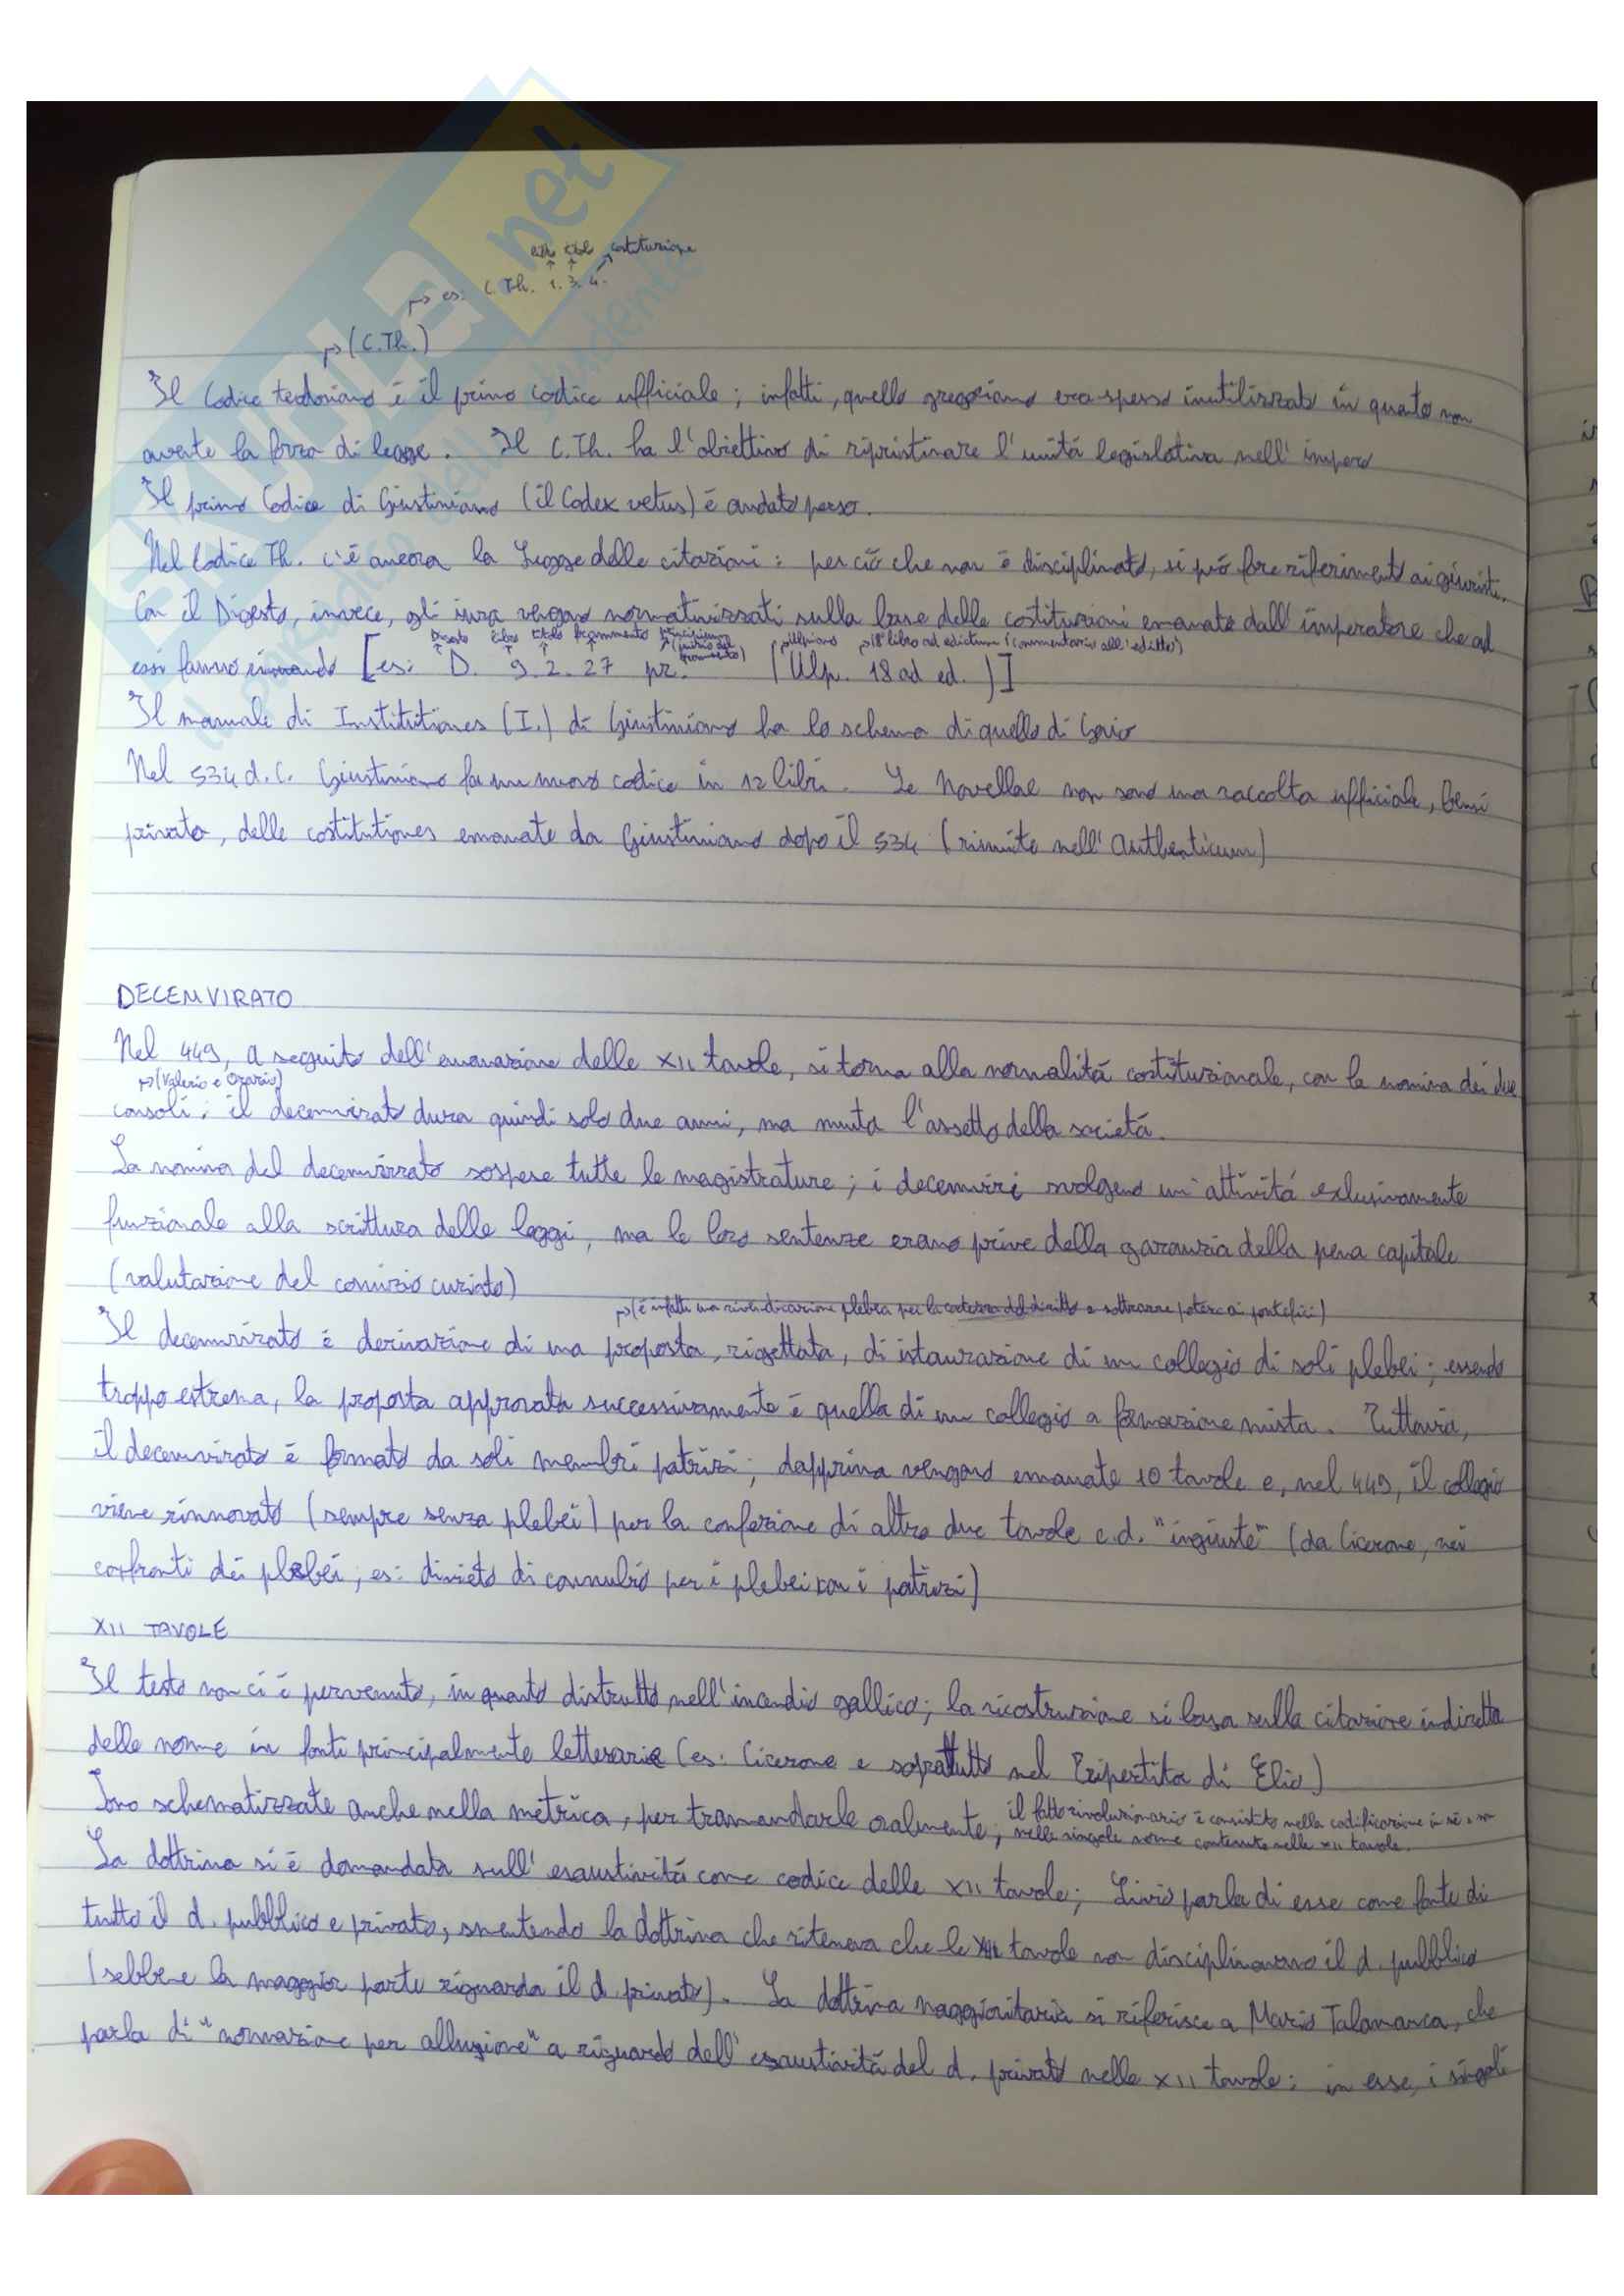 libro titolo costituzione
↑ ↑ ↗
→ es: C.Th. 1.3.4.
→ (C.Th.)
Il Codice teodosiano è il primo codice ufficiale; infatti, quello gregoriano era spesso inutilizzato in quanto non
avente la forza di legge. Il C.Th. ha l'obiettivo di ripristinare l'unitá legislativa nell'impero
Il primo Codice di Giustiniano (il Codex vetus) é andato perso.
Nel Codice Th. c'é ancora la Legge delle citazioni: per ció che non é disciplinato, si puó fare riferimento ai giuristi.
Con il Digesto, invece, gli iura vengono normativizzati sulla base delle costituzioni emanate dall'imperatore che ad
Digesto libro titolo frammento principium (inizio del frammento) →Ulpiano →18º libro ad edictum (commentario all'editto)
essi fanno rimando [es: D. 9. 2. 27 pr. (Ulp. 18 ad ed.)]
Il manuale di Institutiones (I.) di Giustiniano ha lo schema di quello di Gaio
Nel 534 d.C. Giustiniano fa un nuovo codice in 12 libri. Le Novellae non sono una raccolta ufficiale, bensì
privata, delle costitutiones emanate da Giustiniano dopo il 534 (riunite nell'Authenticum)
DECEMVIRATO
Nel 449, a seguito dell'emanazione delle XII tavole, si torna alla normalitá costituzionale, con la nomina dei due
→(Valerio e Orazio)
consoli; il decemvirato dura quindi solo due anni, ma muta l'assetto della societá.
La nomina del decemvirato sospese tutte le magistrature; i decemviri svolgono un'attivitá exlusivamente
funzionale alla scrittura delle leggi, ma le loro sentenze erano prive della garanzia della pena capitale
(valutazione del comizio curiato)
→(é infatti una rivendicazione plebea per la certezza del diritto e sottrarre potere ai pontefici)
Il decemvirato é derivazione di una proposta, rigettata, di istaurazione di un collegio di soli plebei; essendo
troppo estrema, la proposta approvata successivamente é quella di un collegio a formazione mista. Tuttavia,
il decemvirato é formato da soli membri patrizi; dapprima vengono emanate 10 tavole e, nel 449, il collegio
viene rinnovato (sempre senza plebei) per la confezione di altre due tavole c.d. "ingiuste" (da Cicerone, nei
confronti dei plebei; es: divieto di connubio per i plebei con i patrizi)
XII TAVOLE
Il testo non ci é pervenuto, in quanto distrutto nell'incendio gallico; la ricostruzione si basa sulla citazione indiretta
delle norme in fonti principalmente letterarie (es: Cicerone e soprattutto nel Tripertita di Elio)
Sono schematizzate anche nella metrica, per tramandarle oralmente; il fatto rivoluzionario é consistito nella codificazione in sé e non
nelle singole norme contenute nelle XII tavole.
La dottrina si é domandata sull'esaustivitá come codice delle XII tavole; Livio parla di esse come fonte di
tutto il d. pubblico e privato, smentendo la dottrina che riteneva che le XII tavole non disciplinavano il d. pubblico
(sebbene la maggior parte riguarda il d. privato). La dottrina maggioritaria si riferisce a Mario Talamanca, che
parla di "normazione per allusione" a riguardo dell'esaustivitá del d. privato nelle XII tavole: in esse, i singoli